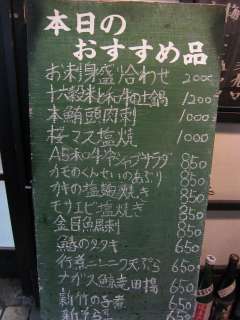 本日の
おすすめ品
お刺身盛り合わせ 2000
十六穀米と和牛の土鍋 1200
本鮪頭肉刺 1000
桜マス塩焼 1000
A5和牛冷シャブサラダ 850
カモのくんせいのあぶり 850
カキの塩麹焼き 850
モサエビ塩焼き 850
金目魚刺 850
鯵のタタキ 650
行者ニンニク天ぷら 650
ナガス鯨竜田揚 650
新竹の子煮 650
650